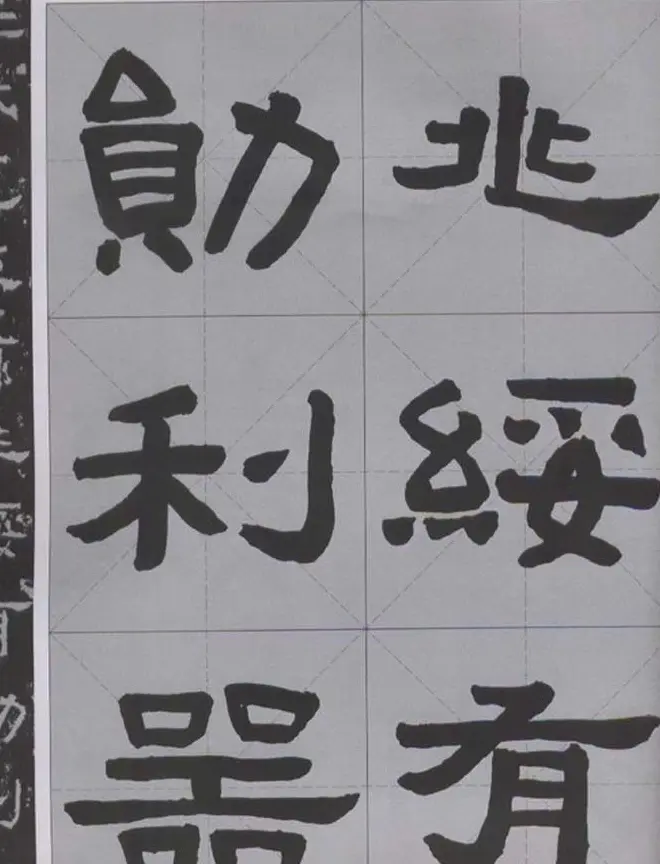 兆綏有
勛利器